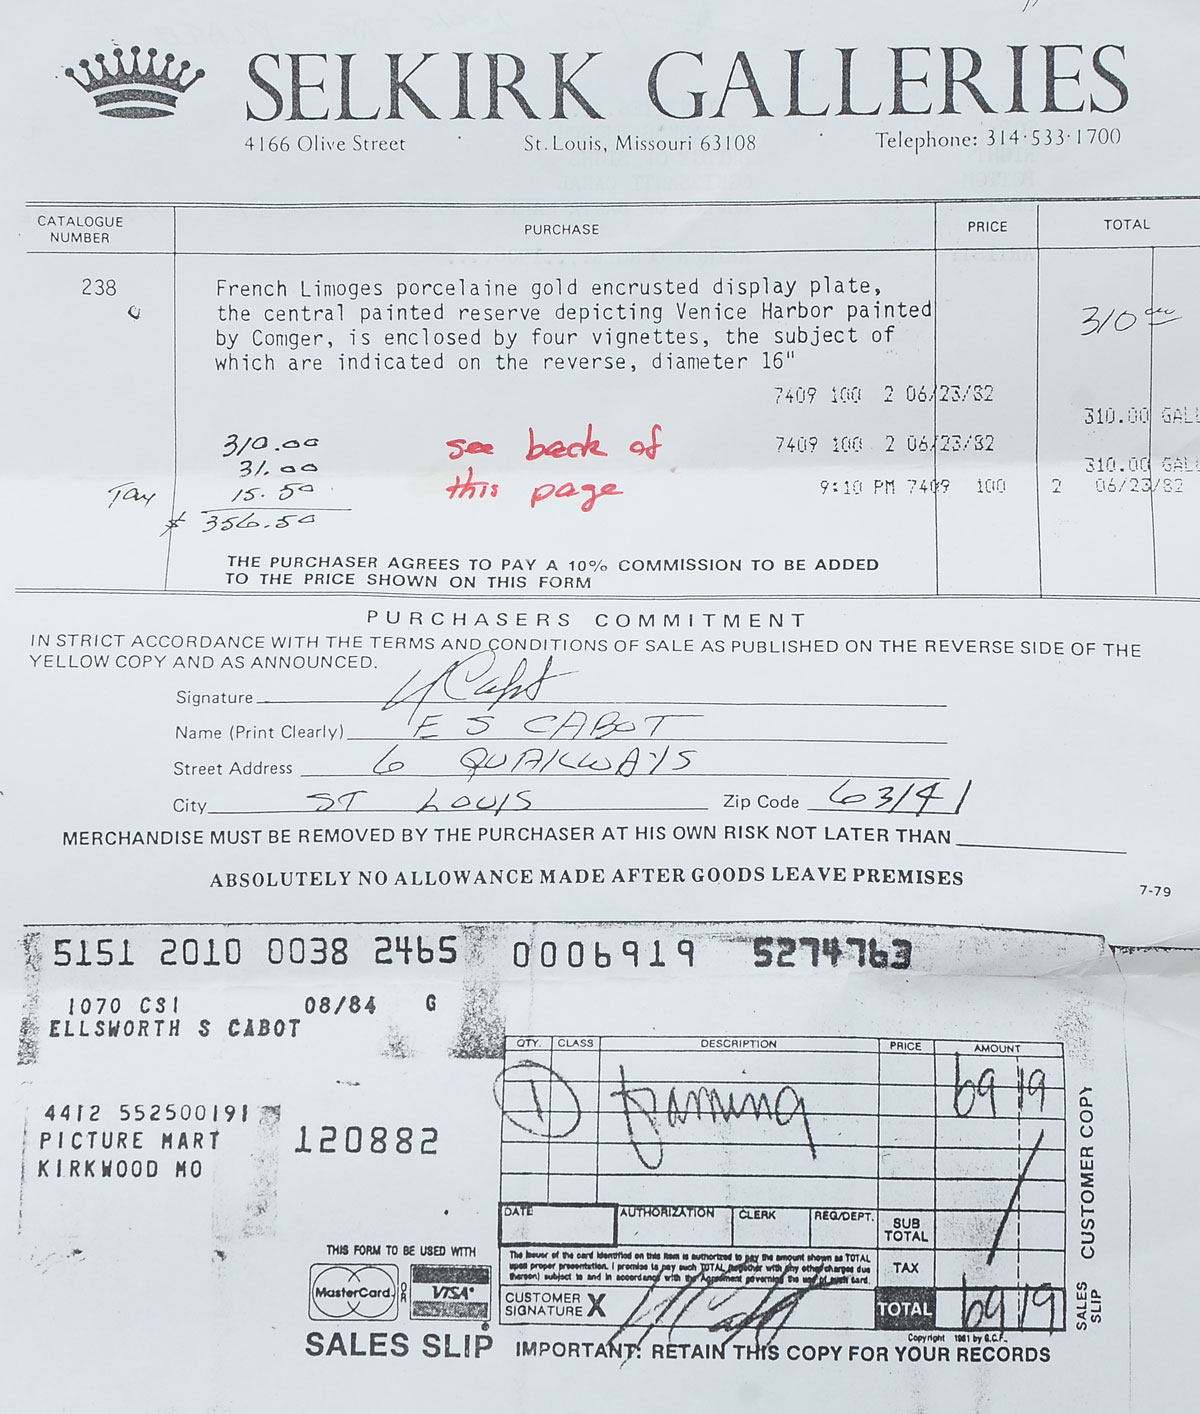 SELKIRK GALLERIES
4166 Olive Street · St. Louis, Missouri 63108 · Telephone: 314·533·1700
CATALOGUE NUMBER PURCHASE PRICE TOTAL
238 French Limoges porcelaine gold encrusted display plate,
the central painted reserve depicting Venice Harbor painted
by Comger, is enclosed by four vignettes, the subject of
which are indicated on the reverse, diameter 16"
310
7409 100 2 06/23/82
310.00 GALL
310.00 see back of 7409 100 2 06/23/82
31.00 310.00 GALL
Tax 15.50 this page 9:10 PM 7409 100 2 06/23/82
$ 356.50
THE PURCHASER AGREES TO PAY A 10% COMMISSION TO BE ADDED
TO THE PRICE SHOWN ON THIS FORM
PURCHASERS COMMITMENT
IN STRICT ACCORDANCE WITH THE TERMS AND CONDITIONS OF SALE AS PUBLISHED ON THE REVERSE SIDE OF THE
YELLOW COPY AND AS ANNOUNCED.
Signature
Name (Print Clearly) E S CABOT
Street Address 6 QUAILWAYS
City ST LOUIS Zip Code 63141
MERCHANDISE MUST BE REMOVED BY THE PURCHASER AT HIS OWN RISK NOT LATER THAN
ABSOLUTELY NO ALLOWANCE MADE AFTER GOODS LEAVE PREMISES
7-79
5151 2010 0038 2465 0006919 5274763
1070 CSI 08/84 G
ELLSWORTH S CABOT
QTY. CLASS DESCRIPTION PRICE AMOUNT
1 framing 69 19
4412 552500191
PICTURE MART 120882
KIRKWOOD MO
CUSTOMER COPY
DATE AUTHORIZATION CLERK REG/DEPT. SUB TOTAL
THIS FORM TO BE USED WITH
MasterCard OR VISA
The issuer of the card identified on this item is authorized to pay the amount shown as TOTAL
upon proper presentation. I promise to pay such TOTAL (together with any other charges due
thereon) subject to and in accordance with the Agreement governing the use of such card.
TAX
CUSTOMER SIGNATURE X
TOTAL 69 19
SALES SLIP
Copyright 1981 by G.C.F.
SALES SLIP IMPORTANT: RETAIN THIS COPY FOR YOUR RECORDS